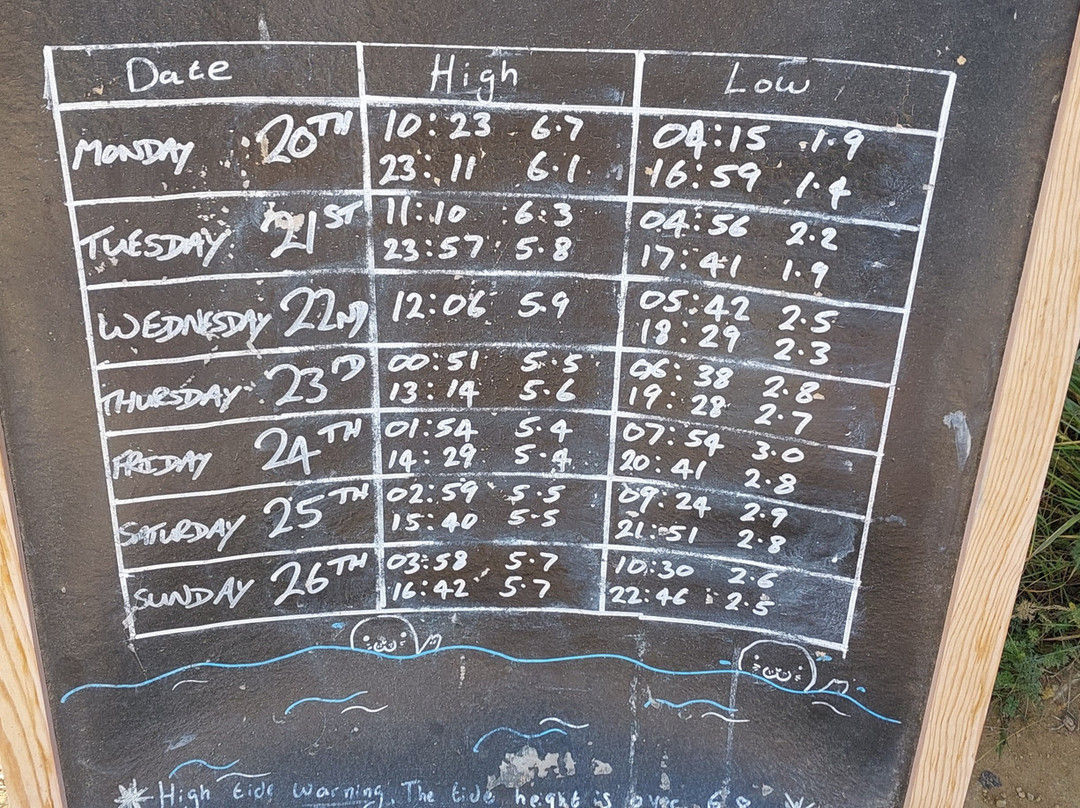 Date High Low
MONDAY 20TH 10:23 6.7 04:15 1.9
23:11 6.1 16:59 1.4
TUESDAY 21ST 11:10 6.3 04:56 2.2
23:57 5.8 17:41 1.9
WEDNESDAY 22ND 12:06 5.9 05:42 2.5
18:29 2.3
THURSDAY 23RD 00:51 5.5 06:38 2.8
13:14 5.6 19:28 2.7
FRIDAY 24TH 01:54 5.4 07:54 3.0
14:29 5.4 20:41 2.8
SATURDAY 25TH 02:59 5.5 09:24 2.9
15:40 5.5 21:51 2.8
SUNDAY 26TH 03:58 5.7 10:30 2.6
16:42 5.7 22:46 2.5
* High tide warning. The tide height is over